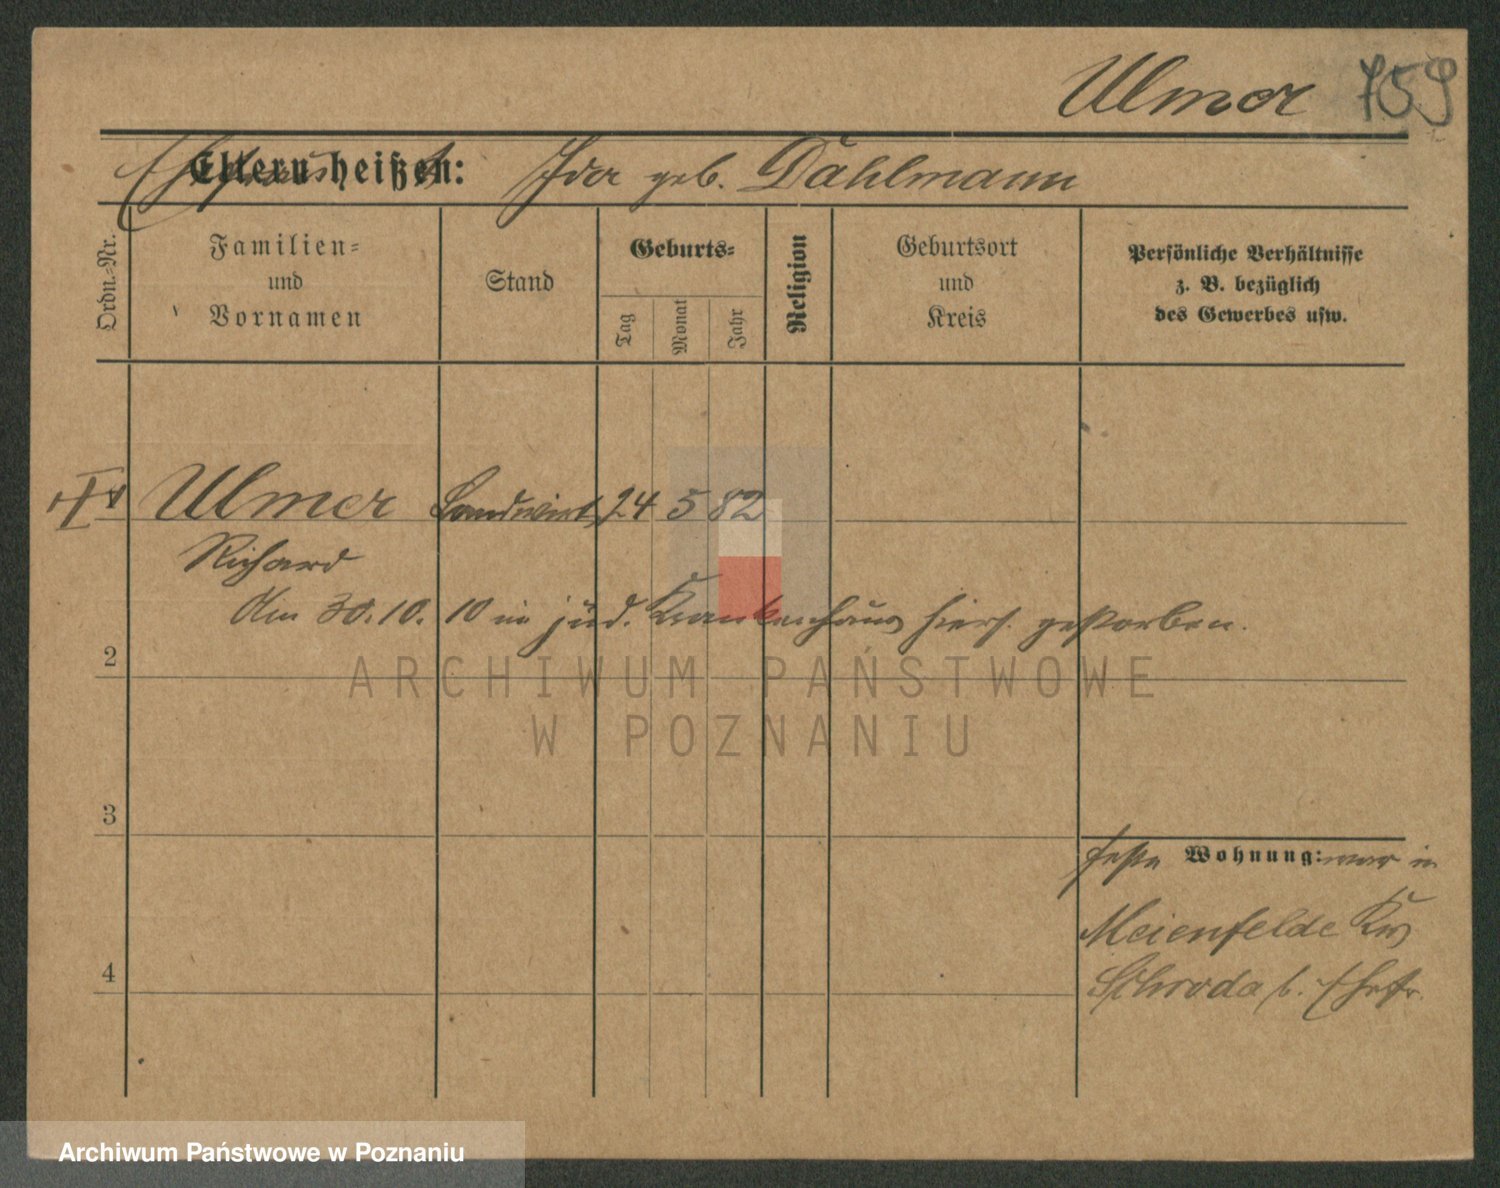 Ulmer 759
Eltern heißen: Ida geb. Dahlmann
Ordn.-Nr.
Familien-
und
Vornamen
Stand
Geburts-
Tag
Monat
Jahr
Religion
Geburtsort
und
Kreis
Persönliche Verhältnisse
z. B. bezüglich
des Gewerbes usw.
Ulmer Landwirt 24 5 82
Richard
Am 30.10.10 in jüd. Krankenhaus hiers. gestorben.
2
ARCHIWUM PAŃSTWOWE
W POZNANIU
3
feste Wohnung: war in
Meienfelde Krs
Schroda b. Ehefr.
4
Archiwum Państwowe w Poznaniu